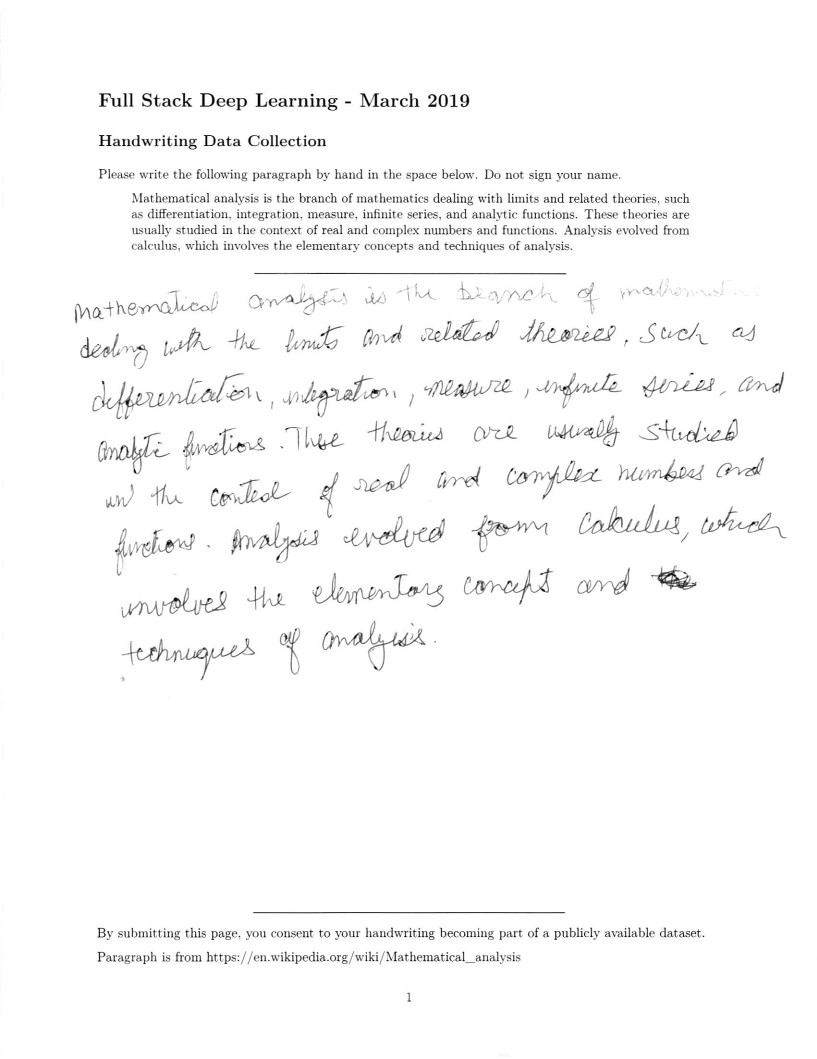 Full Stack Deep Learning - March 2019
Handwriting Data Collection
Please write the following paragraph by hand in the space below. Do not sign your name.
Mathematical analysis is the branch of mathematics dealing with limits and related theories, such
as differentiation, integration, measure, infinite series, and analytic functions. These theories are
usually studied in the context of real and complex numbers and functions. Analysis evolved from
calculus, which involves the elementary concepts and techniques of analysis.
Mathematical analysis is the branch of
dealing with the limits and related theories, such as
differentiation, integration, measure, infinite series, and
analytic functions. These theories are usually studied
in the of real and complex numbers and
functions. Analysis evolved from Calculus, which
involves the elementary concept and
techniques of analysis.
By submitting this page, you consent to your handwriting becoming part of a publicly available dataset.
Paragraph is from https://en.wikipedia.org/wiki/Mathematical_analysis
1